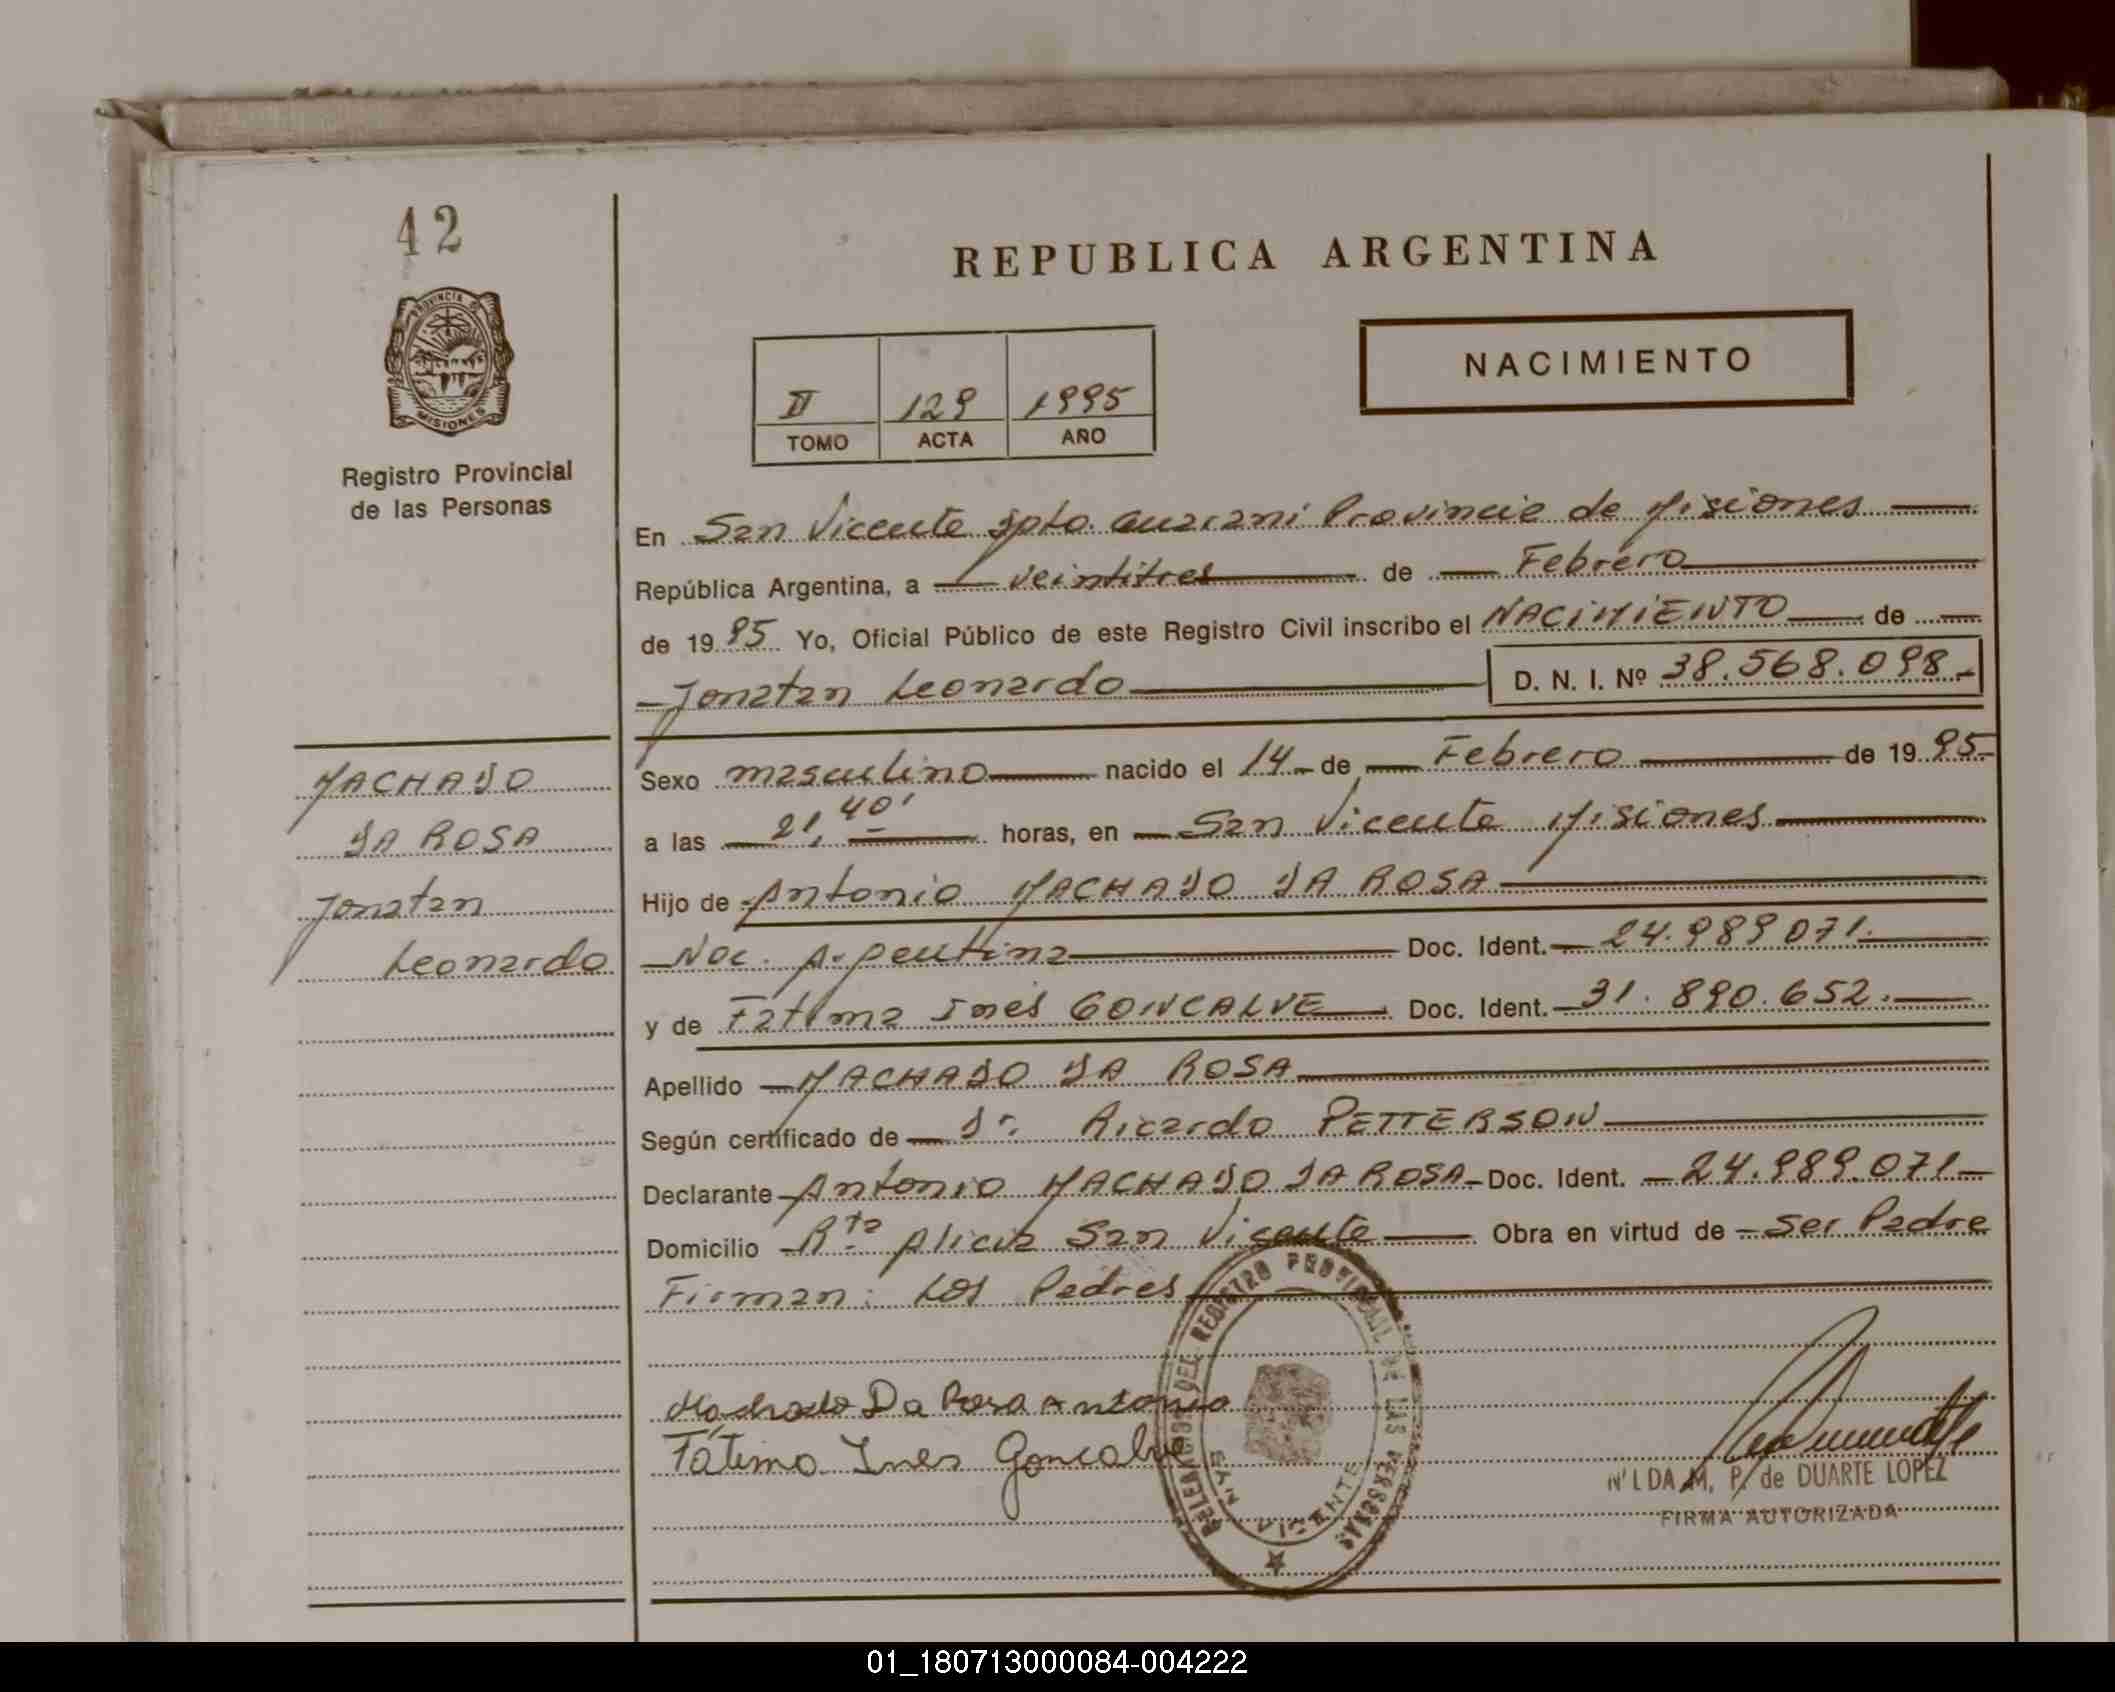 42
PROVINCIA DE
MISIONES
Registro Provincial
de las Personas
REPUBLICA ARGENTINA
NACIMIENTO
II 129 1995
TOMO ACTA AÑO
En San Vicente Dpto. Guarani Provincia de Misiones
República Argentina, a veintitres de Febrero
de 1995 Yo, Oficial Público de este Registro Civil inscribo el NACIMIENTO de
Jonatan Leonardo D. N. I. Nº 38.568.098.-
MACHADO
DA ROSA
Jonatan
Leonardo
Sexo masculino nacido el 14 de Febrero de 1995-
a las 21,40' horas, en San Vicente Misiones
Hijo de Antonio MACHADO DA ROSA
Nac. Argentina Doc. Ident. 24.989.071.
y de Fatima Ines GONCALVE Doc. Ident. 31.890.652.
Apellido MACHADO DA ROSA
Según certificado de Dr. Ricardo PETTERSON
Declarante Antonio MACHADO DA ROSA- Doc. Ident. 24.989.071-
Domicilio Rta Alicia San Vicente Obra en virtud de ser Padre
Firman: Los Padres
Machado Da Rosa Antonio
Fátima Ines Goncalve
DELEGACION DEL REGISTRO PROVINCIAL DE LAS PERSONAS
SAN VICENTE
M. P. de DUARTE LOPEZ
FIRMA AUTORIZADA
01_180713000084-004222